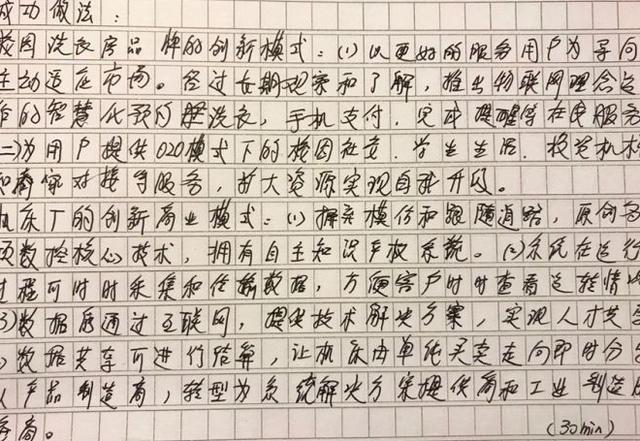 成功做法：
校园洗衣房品牌的创新模式：(1)以更好的服务用户为导向
主动适应市场。经过长期观察和了解，推出物联网理念
的智慧化预约型洗衣，手机支付，完成提醒等在线服务
(二)为用户提供O2O模式下的校园社交.学生生活.校党机构
和商家对接等服务，扩大资源实现自我升级。
机床厂的创新商业模式：(1)摒弃模仿和跟随道路，原创
项数控核心技术，拥有自主知识产权系统。(2)系统在运行
过程可时时采集和传输数据，方便客户时时查看运转情况
(3)数据后通过互联网，提供技术解决方案，实现人才共
数据共享可进行结算，让机床由单纯买卖走向即时分
人产品制造商，转型为系统解决方案提供商和工业制造
商。
(30min)